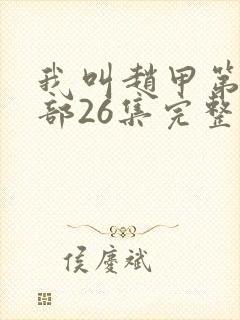 我叫趙甲第
部26集完整
侯慶斌